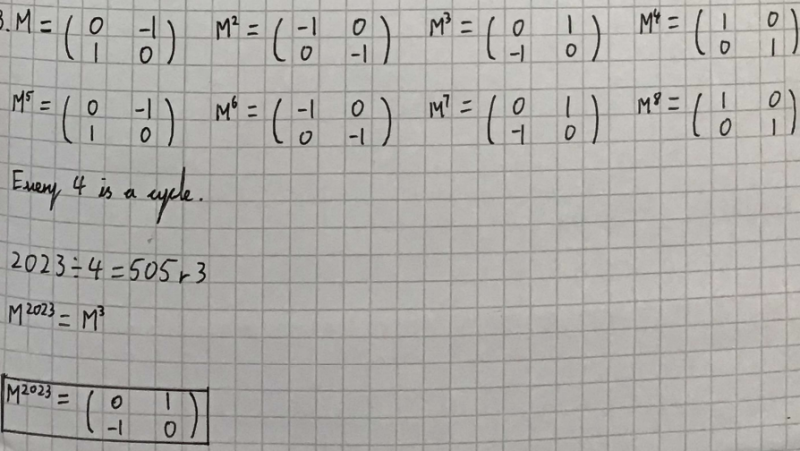 3. M = ( 0 -1 ; 1 0 ) M² = ( -1 0 ; 0 -1 ) M³ = ( 0 1 ; -1 0 ) M⁴ = ( 1 0 ; 0 1 )
M⁵ = ( 0 -1 ; 1 0 ) M⁶ = ( -1 0 ; 0 -1 ) M⁷ = ( 0 1 ; -1 0 ) M⁸ = ( 1 0 ; 0 1 )
Every 4 is a cycle.
2023 ÷ 4 = 505 r 3
M²⁰²³ = M³
M²⁰²³ = ( 0 1 ; -1 0 )